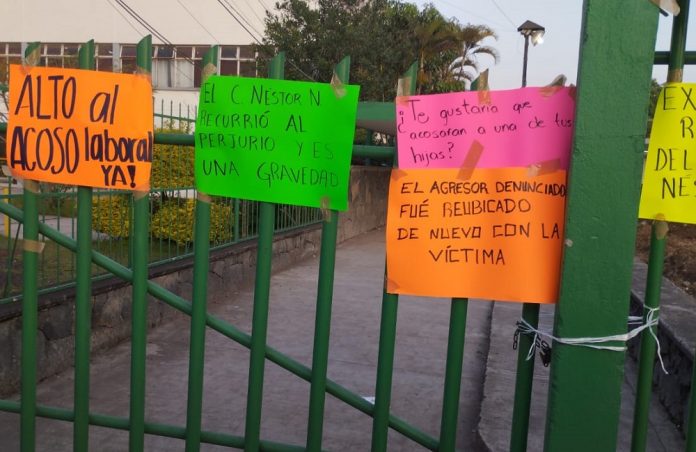 ALTO al
ACOSO laboral
YA!
EL C. NÉSTOR N
RECURRIÓ AL
PERJURIO Y ES
UNA GRAVEDAD
¿Te gustaria que
acosaran a una de tus
hijas?
EL AGRESOR DENUNCIADO
FUÉ REUBICADO
DE NUEVO CON LA
VÍCTIMA
EX
R
DEL
NÉS